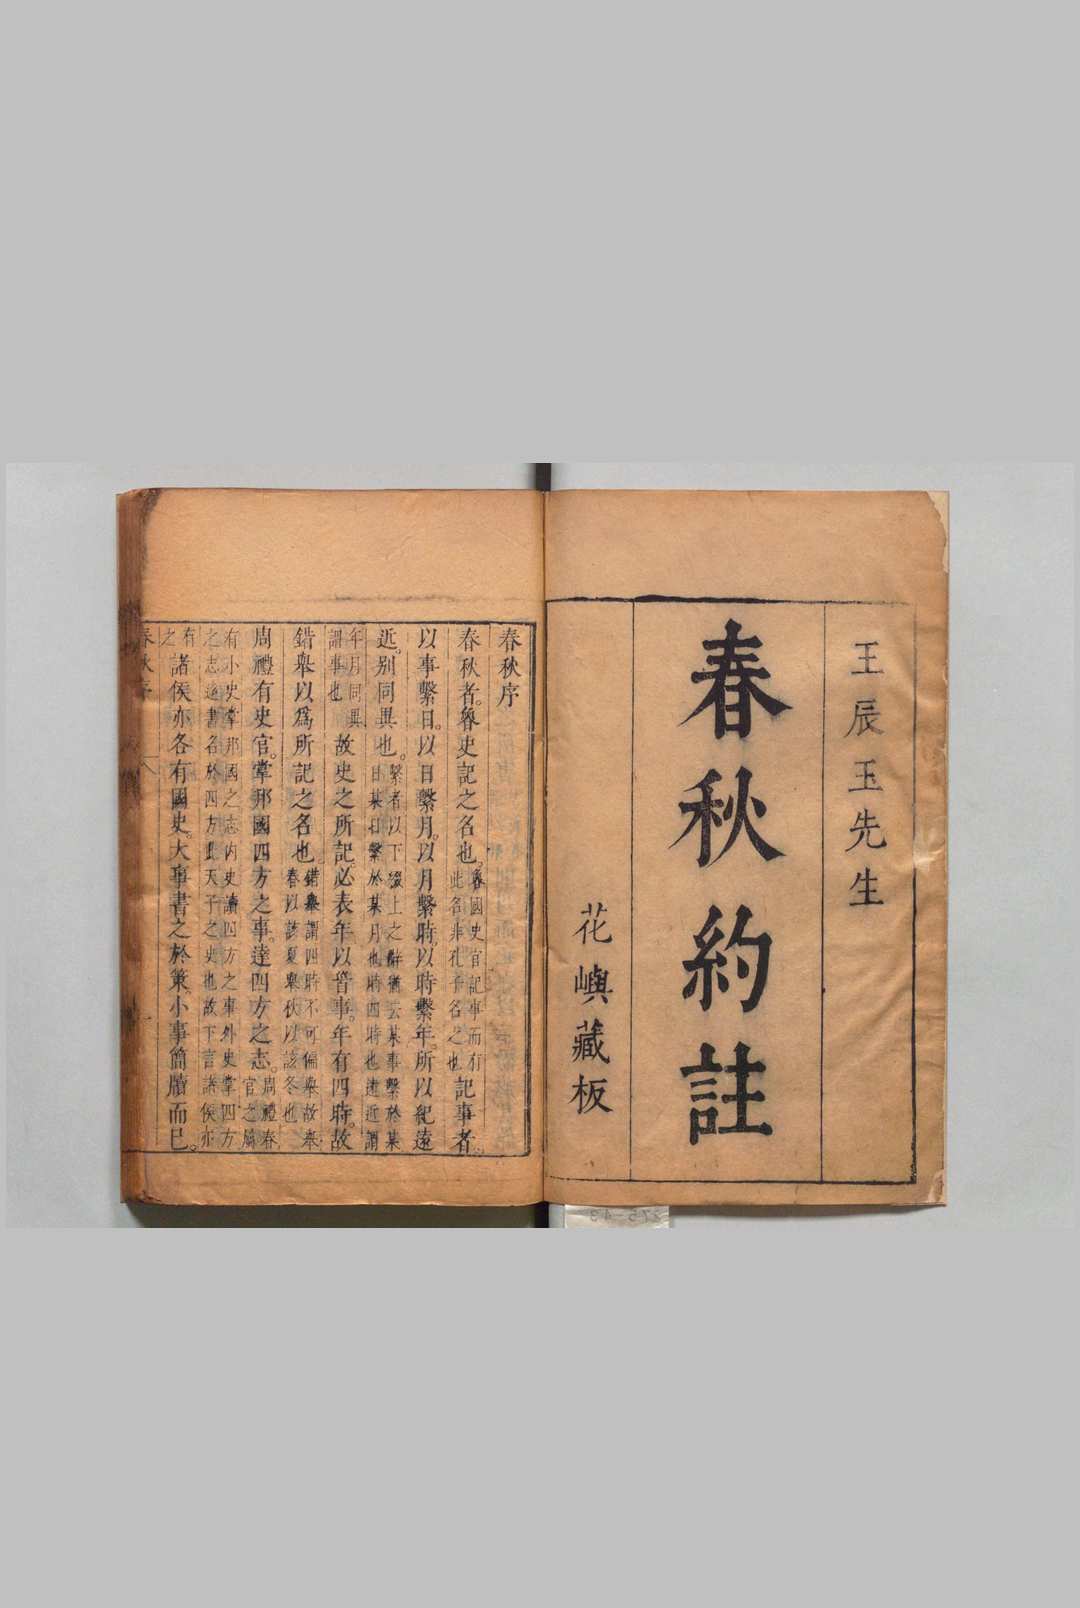 王辰玉先生
春秋約註
花嶼藏板
春秋序
春秋者。魯史記之名也。魯國史官記事而有此名非孔子名之也記事者。
以事繫日。以日繫月。以月繫時。以時繫年。所以紀遠
近。别同異也。繫者以下綴上之辭猶云某事繫於某日某日繫於某月也時四時也遠近謂
年月同異謂事也故史之所記。必表年以首事。年有四時。故
錯舉以爲所記之名也。錯舉謂四時不可偏舉故舉春以該夏舉秋以該冬也
周禮有史官。掌邦國四方之事。達四方之志。周禮春官之屬
有小史掌邦國之志内史讀四方之事外史掌四方之志達書名於四方此天子之史也故下言諸侯亦
有之諸侯亦各有國史。大事書之於策。小事簡牘而已。
春秋序
一
275-43